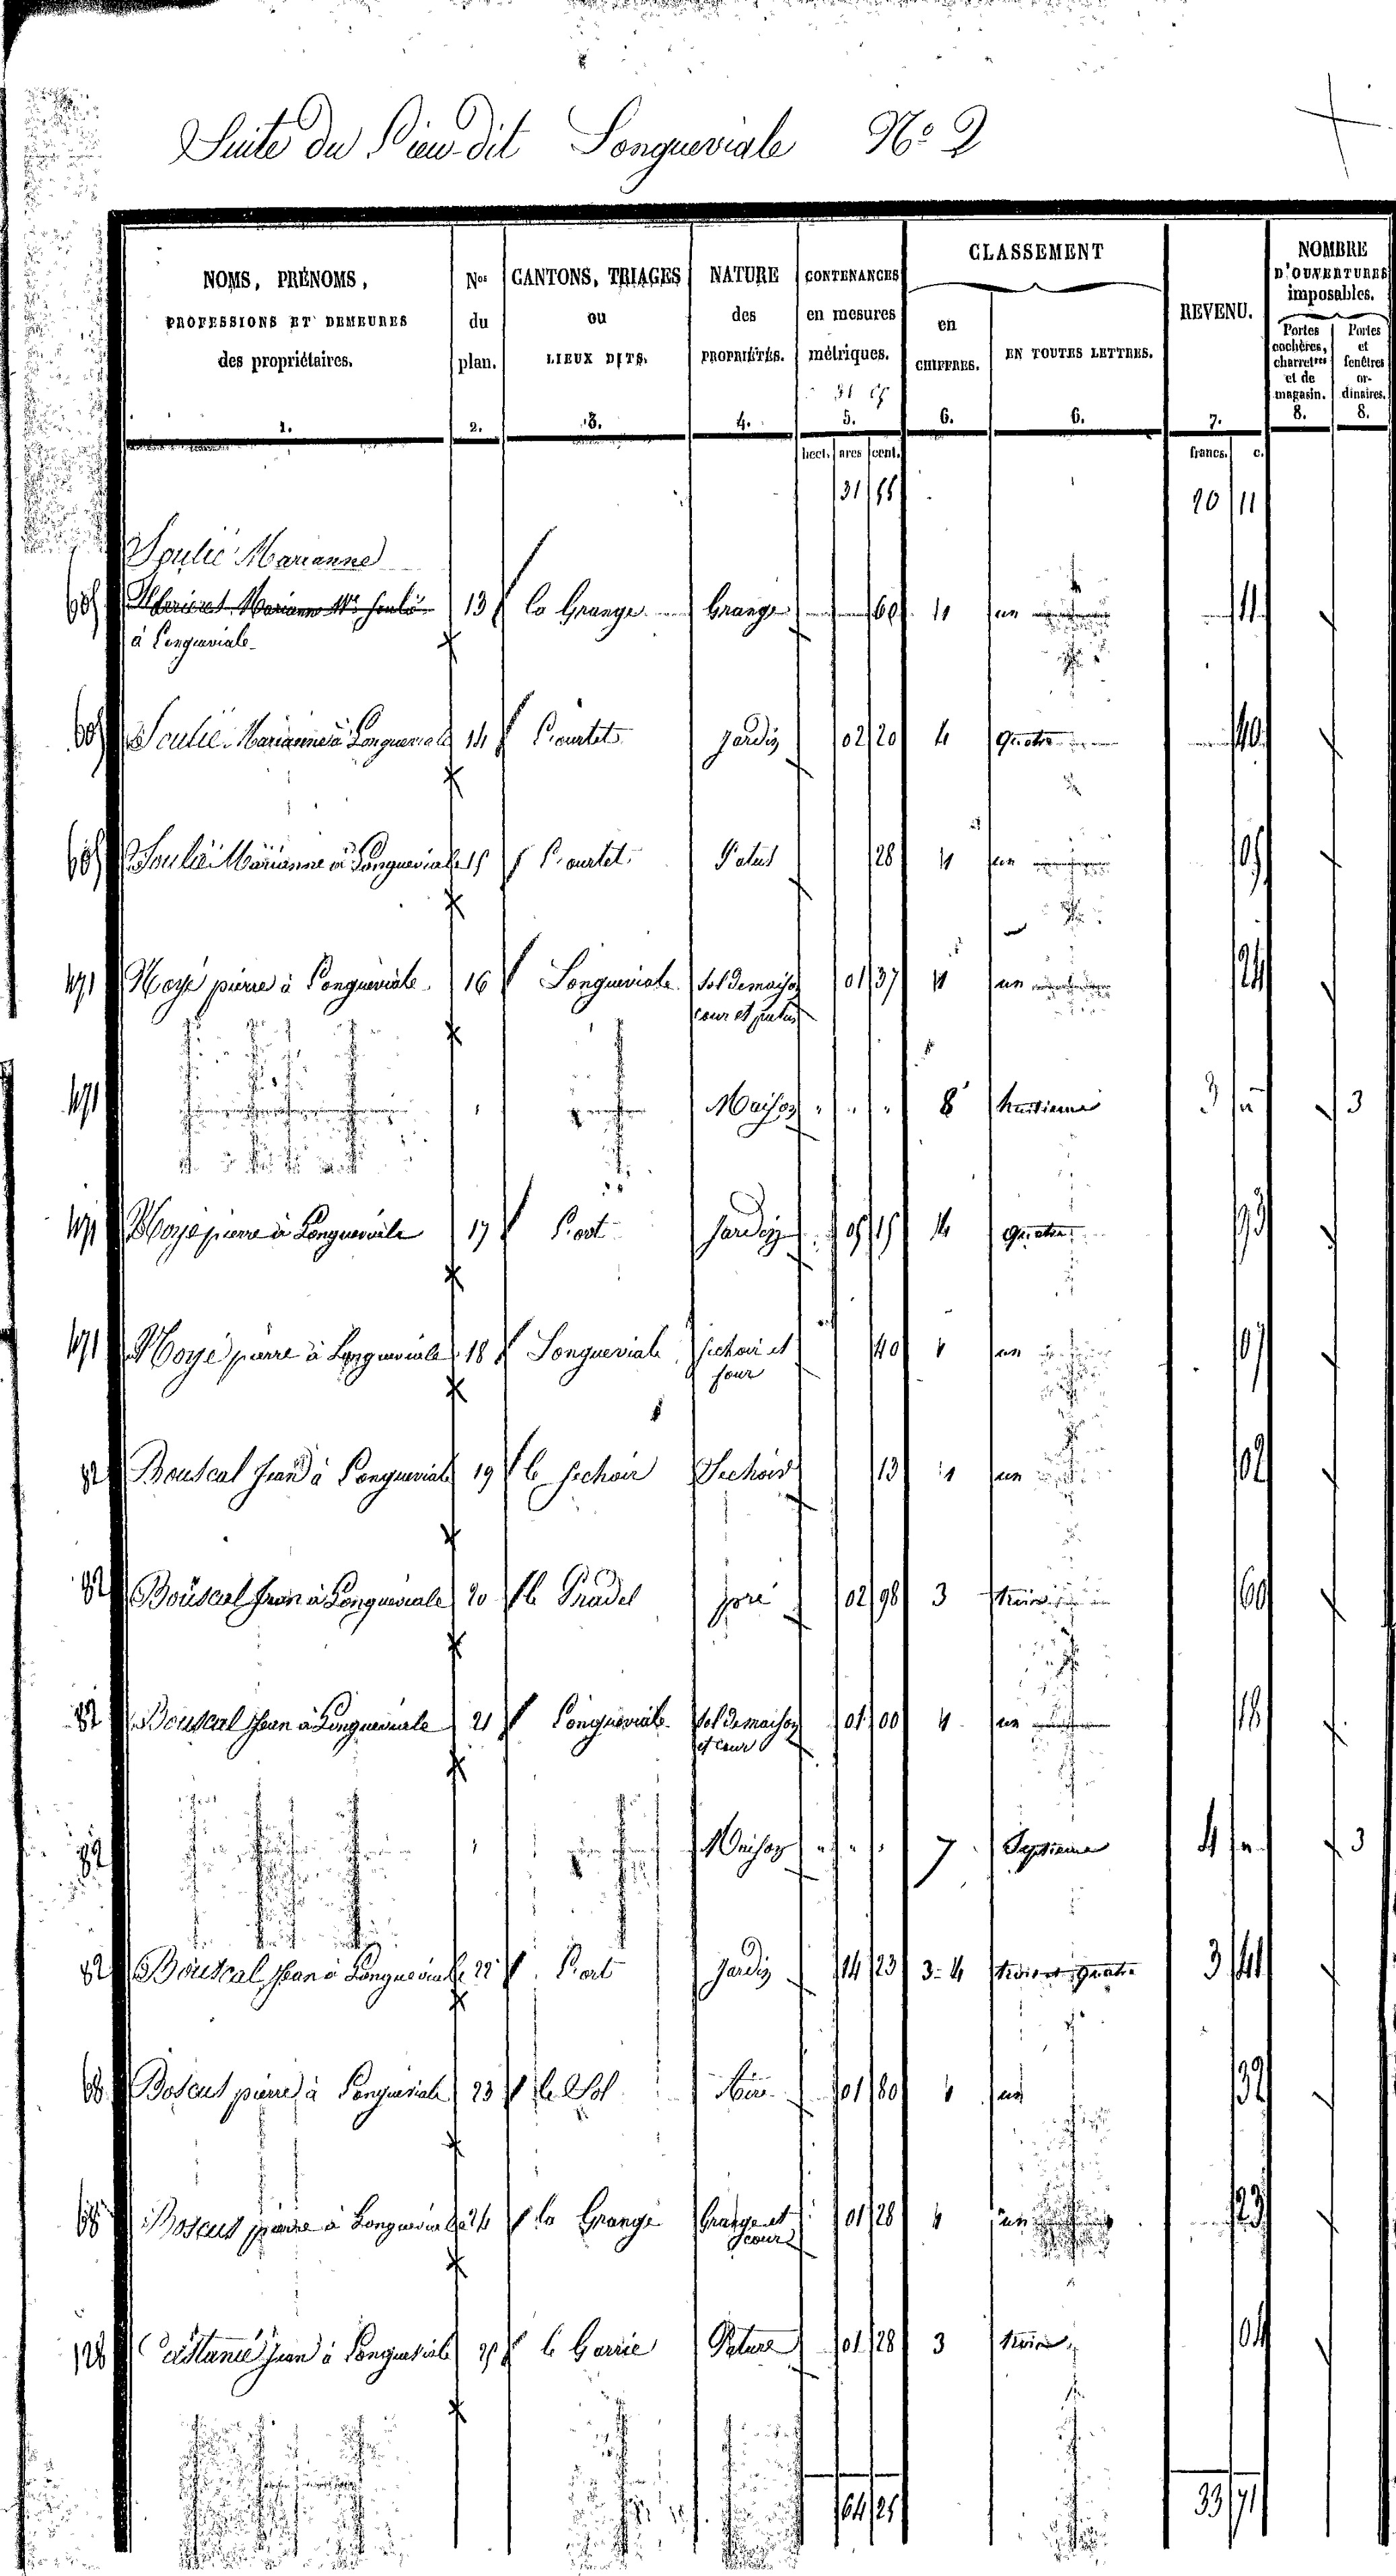 Suite du Lieu dit Longueviale No 2
NOMS, PRÉNOMS, PROFESSIONS ET DEMEURES des propriétaires. 1.
Nos du plan. 2.
CANTONS, TRIAGES ou LIEUX DITS. 3.
NATURE des PROPRIÉTÉS. 4.
CONTENANCES en mesures métriques. 5.
CLASSEMENT
en CHIFFRES. 6.
EN TOUTES LETTRES. 6.
REVENU. 7.
NOMBRE D'OUVERTURES imposables.
Portes cochères, charretres et de magasin. 8.
Portes et fenêtres ordinaires. 8.
hect. ares cent. francs. c.
31 10 11
Soulié Marianne
13 la Grange Grange 60 1 un 11
à Longueviale
Soulié Marianne à Longueviale 14 jardin 02 20 4 Quatre 40
Soulié Marianne à Longueviale 15 Patus 28 1 un 05
471 Noyé pierre à Longueviale 16 Longueviale Sol de maison 01 37 1 un 24
cour et patus
471 Maison " " " 8 huitieme 3 " 3
471 Noyé pierre à Longueviale 17 L'ort Jardin 05 15 4 Quatre 93
471 Noyé pierre à Longueviale 18 Longueviale sechoir et 40 1 un 07
four
82 Bouscal Jean à Longueviale 19 le sechoir Sechoir 13 1 un 02
82 Bouscal Jean à Longueviale 20 le Pradel pré 02 98 3 trois 60
82 Bouscal Jean à Longueviale 21 Longueviale Sol de maison 01 00 1 un 18
et cour
82 Maison " " " 7 Septieme 4 " 3
82 Bouscal Jean à Longueviale 22 L'ort Jardin 14 23 3-4 trois et quatre 3 41
68 Boscus pierre à Longueviale 23 le Sol Aire 01 80 1 un 32
68 Boscus pierre à Longueviale 24 la Grange Grange et 01 28 1 un 23
cour
128 Castanié Jean à Longueviale 25 le Garric Pature 01 28 3 trois 04
64 25 33 71